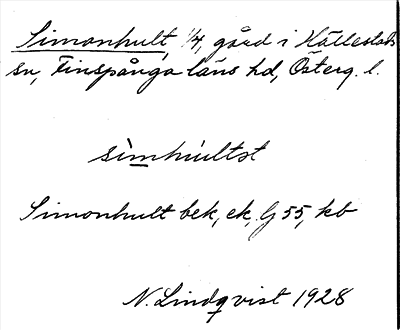 Simonhult, 1/4, gård i Hällestads
sn, Finspånga läns hd, Österg. l.
sìmhu̇ltst
Simonhult bek, ek, G 55, kb
N. Lindqvist 1928